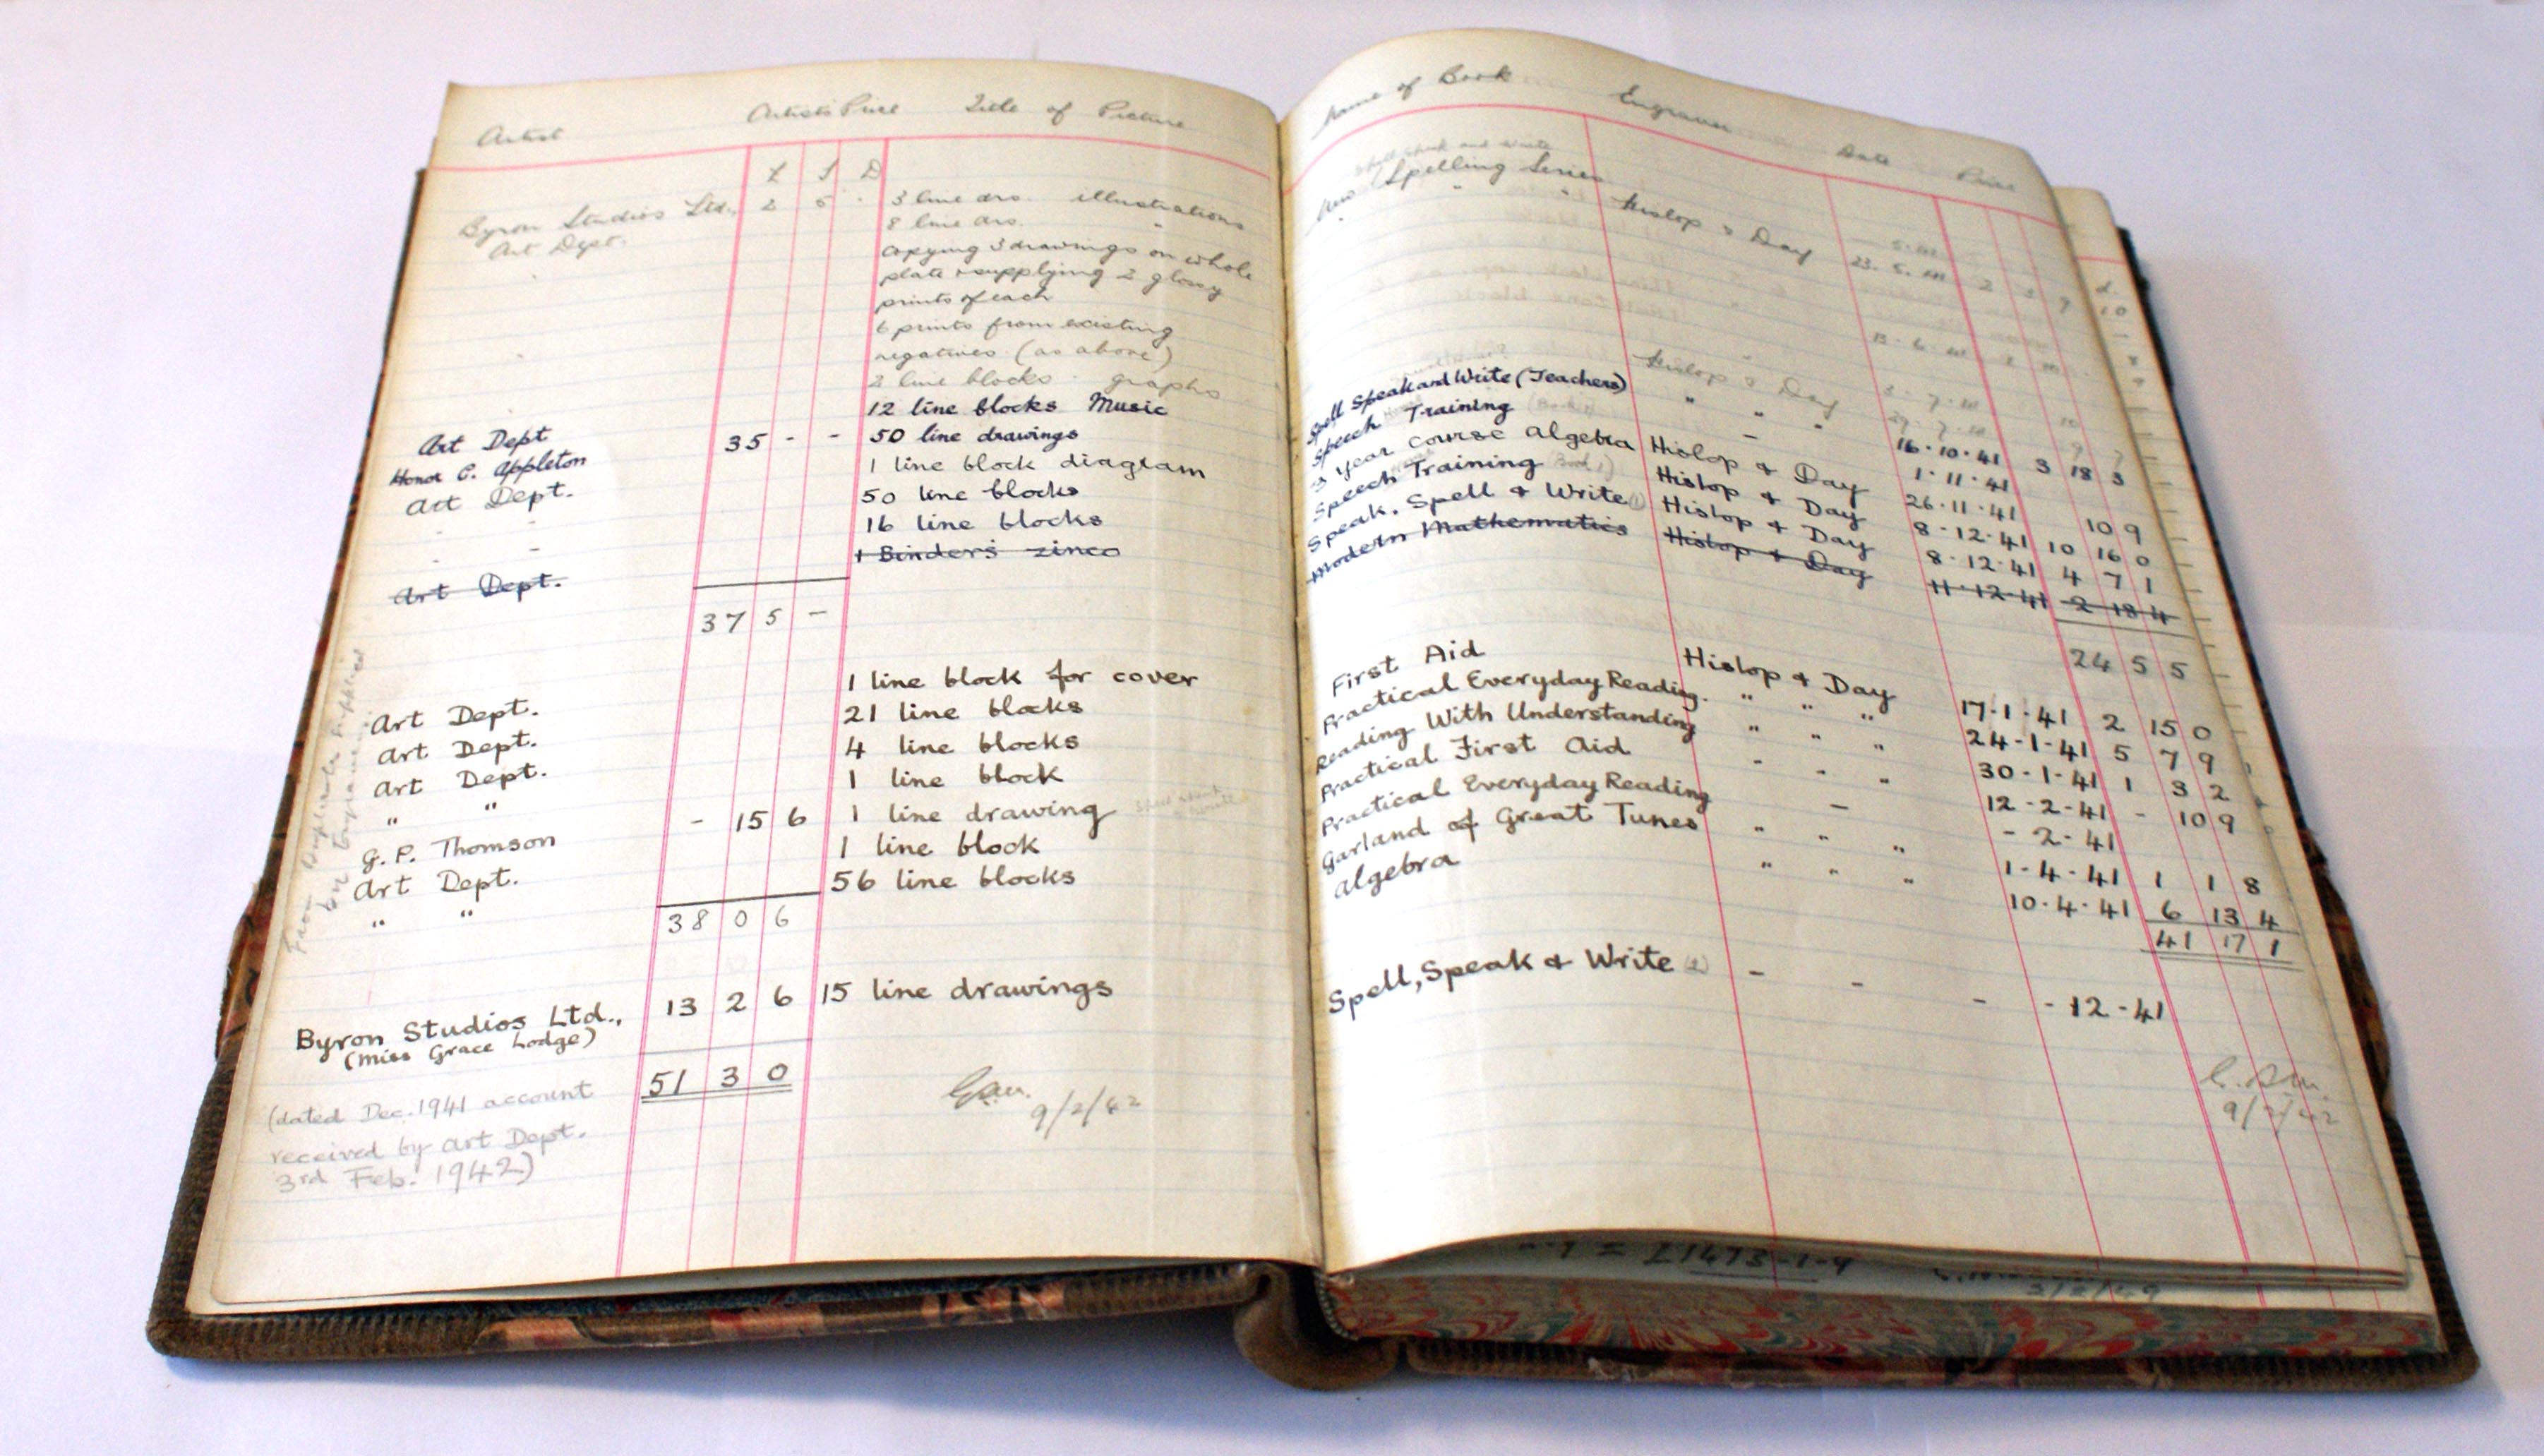 Artist Artists Price Title of Picture
£ S D
Byron Studios Ltd., 2 5 - 3 line drs. illustrations
Art Dept. 8 line drs. "
copying 3 drawings on whole
plate & supplying 2 glossy
prints of each
6 prints from existing
negatives (as above)
2 line blocks graphs
12 line blocks Music
Art Dept 35 - - 50 line drawings
Honor C. Appleton 1 line block diagram
Art Dept. 50 line blocks
16 line blocks
1 Binder's zinco
Art Dept.
37 5 -
1 line block for cover
Art Dept. 21 line blocks
Art Dept. 4 line blocks
Art Dept. 1 line block
" " - 15 6 1 line drawing
G. P. Thomson 1 line block
Art Dept. 56 line blocks
" "
38 0 6
Byron Studios Ltd., 13 2 6 15 line drawings
(Miss Grace Lodge)
51 3 0
(dated Dec. 1941 account
received by Art Dept.
3rd Feb. 1942)
9/2/42
Name of Book Engraver Date Price
Spell Speak and Write
New Spelling Series
" " Hislop & Day
Hislop & Day
Spell Speak and Write (Teachers) " "
Speech Training - " 16.10.41 3 18 3
3 year course Algebra Hislop & Day 1.11.41
Speech Training (Book 1) Hislop & Day 26.11.41 10 9
Speak, Spell & Write (1) Hislop & Day 8.12.41 10 16 0
Modern Mathematics Hislop & Day 8.12.41 4 7 1
11.12.41 2 18 4
24 5 5
First Aid Hislop & Day 17-1-41 2 15 0
Practical Everyday Reading. " " " 24-1-41 5 7 9
Reading With Understanding " " " 30-1-41 1 3 2
Practical First Aid " " " 12-2-41 - 10 9
Practical Everyday Reading - - 2-41
Garland of Great Tunes " " " 1-4-41 1 1 8
Algebra " " " 10.4.41 6 13 4
41 17 1
Spell, Speak & Write (2) - - - - 12-41
9/2/42
£1473-1-9